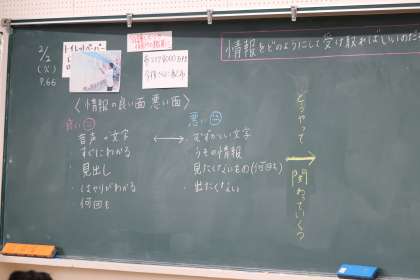 2/2
P.66
トイレットペーパー
情報をどのようにして受け取ればいいのだ
〈情報の良い面 悪い面〉
良い面
音声や文字
すぐにわかる
・見出し
・はやりがわかる
何回も
悪い面
・むずかしい文字
うその情報
見たくないもの(何回も)
・出たくない
どうやって
関わっていくの